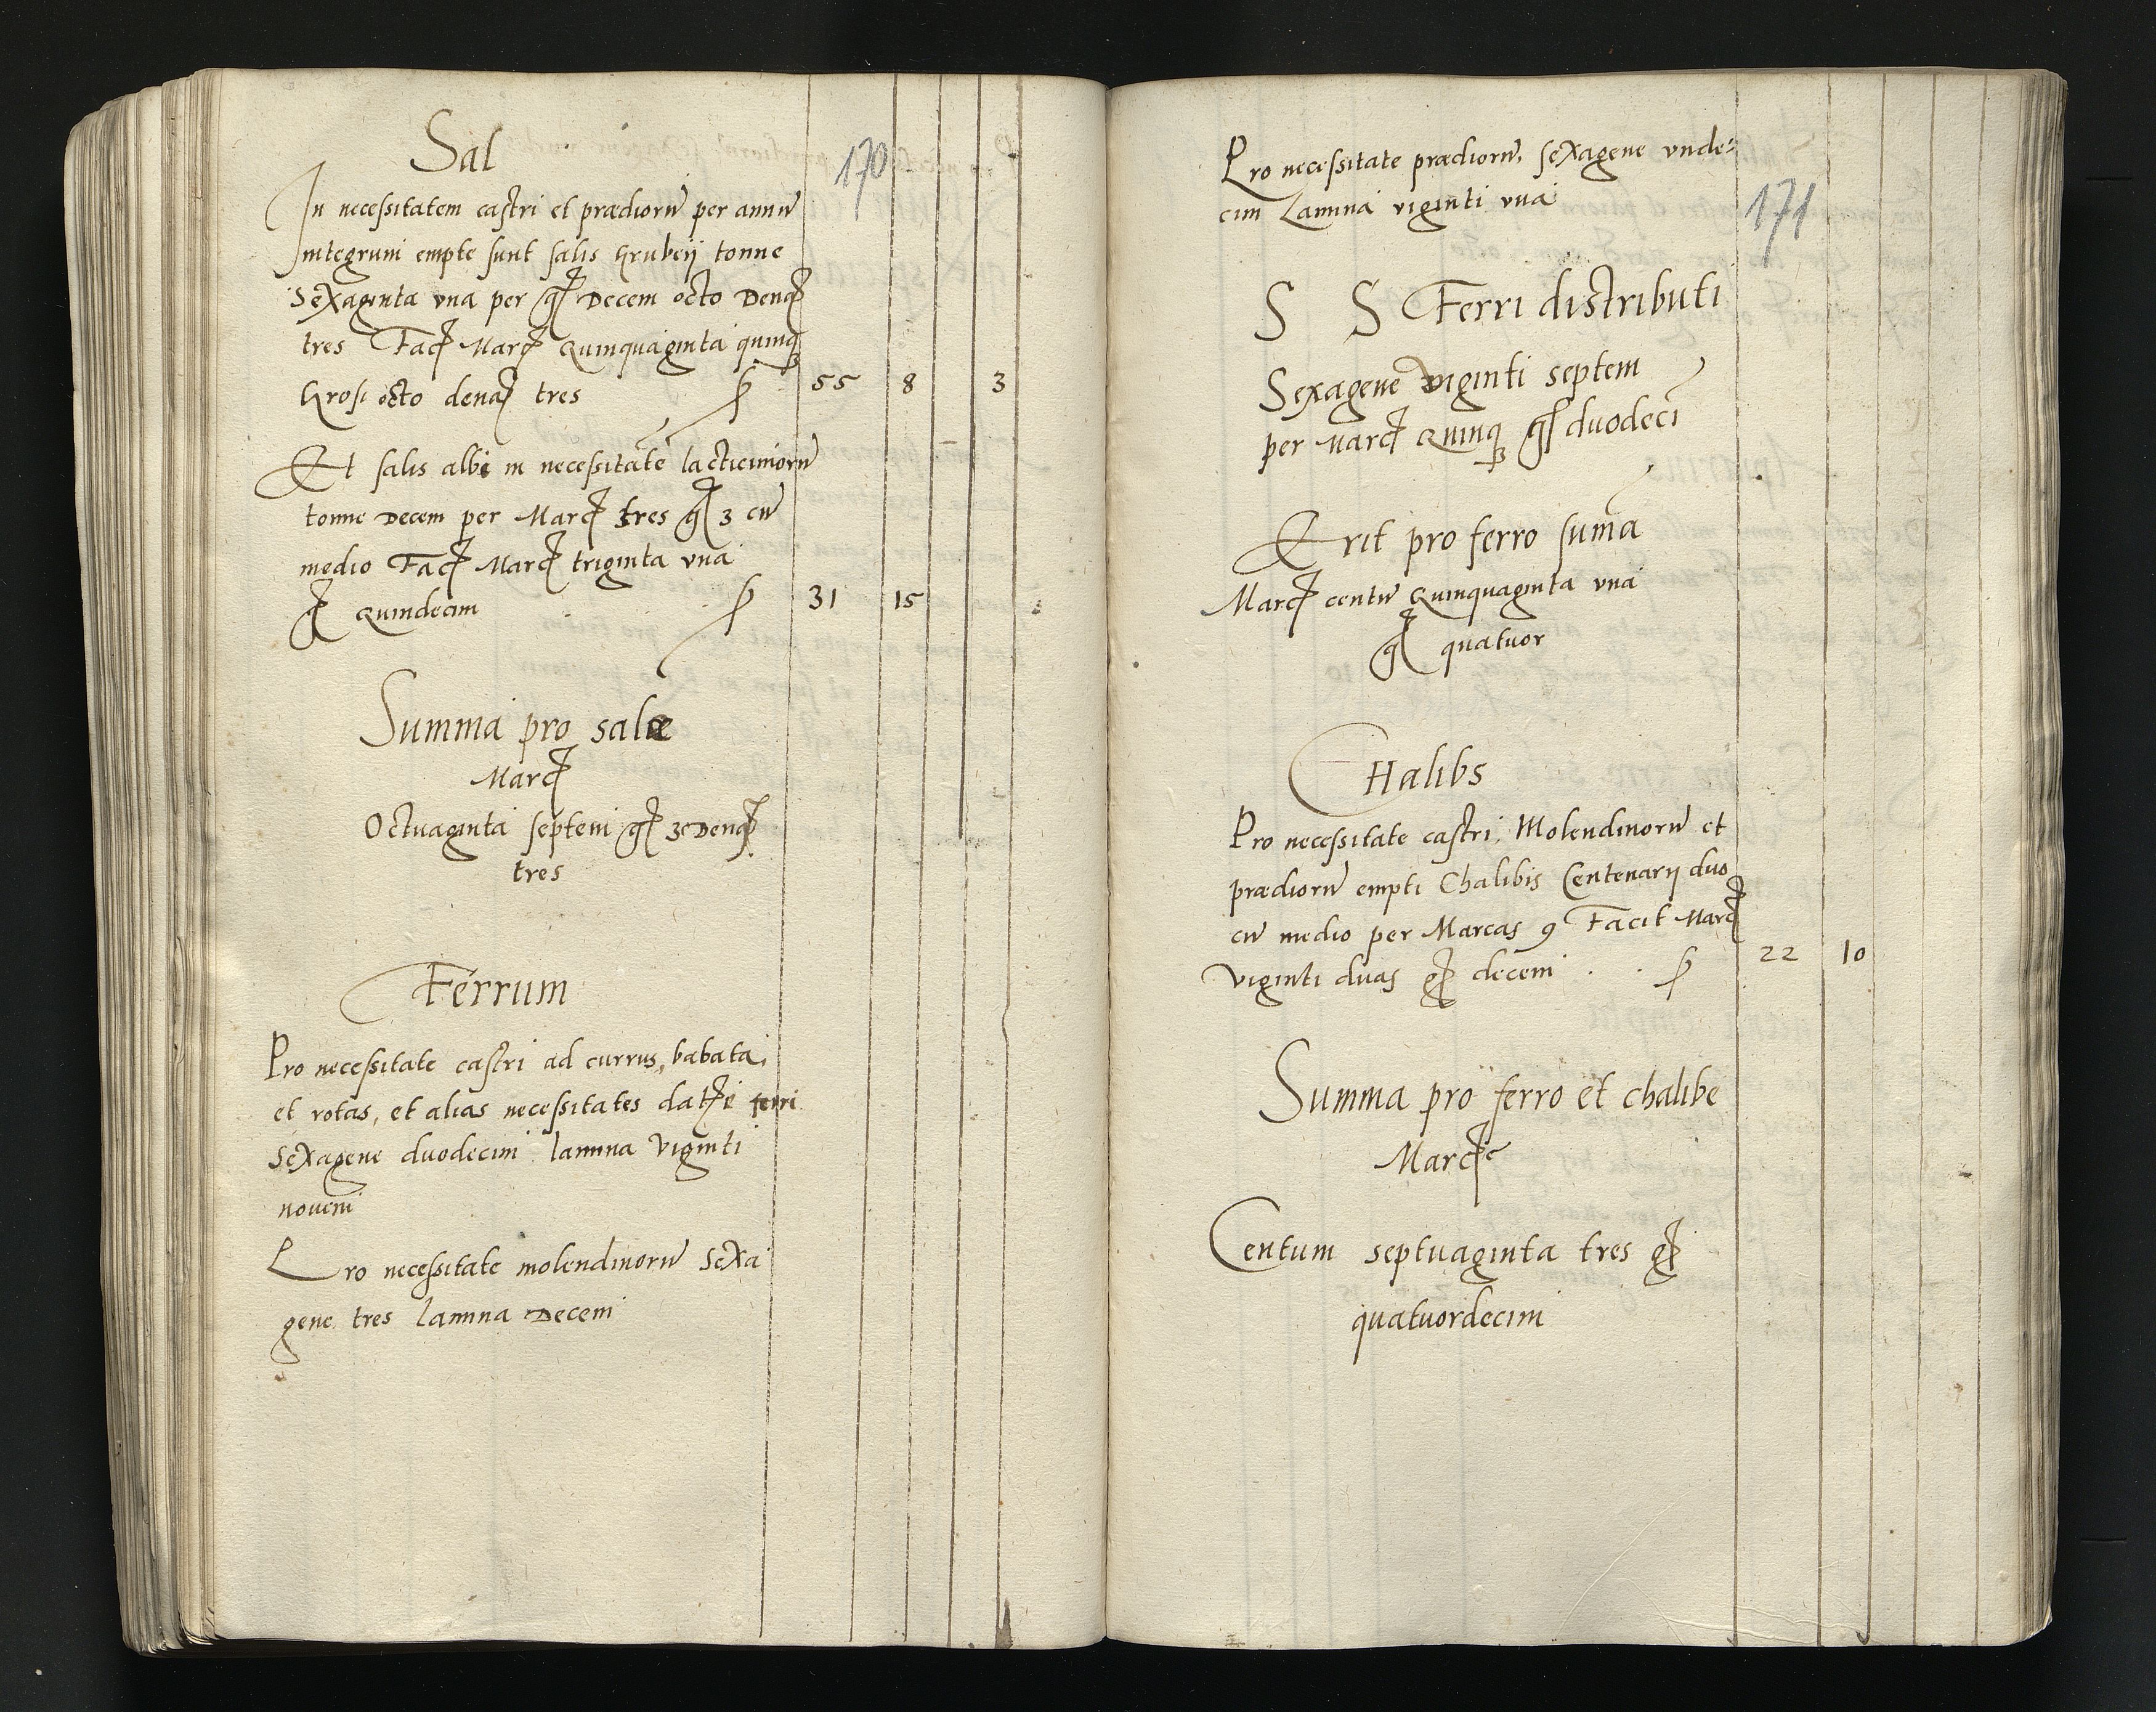 170
Sal
In necessitatem castri et prædiorũ per annũ
integrum empte sunt salis Grubeÿ tonne
Sexaginta una per gʃ Decem octo Denꝗ
tres Facʃ Marcʃ Quinquaginta quinqꝫ
Grosi octo denaʃ tres ꝑ 55 8 3
Et salis albi in necessitatẽ lacticiniorũ
tonne Decem per Marcʃ tres gʃ 3 cũ
medio Facʃ Marcʃ triginta una
gʃ Quindecim ꝑ 31 15
Summa pro sale
Marcʃ
Octuaginta septem gʃ 3 Denꝗ
tres
Ferrum
Pro necessitate castri ad currus, babata,
et rotas, et alias necessitates ferri
Sexagene duodecim lamina Viginti
novem
Pro necessitate molendinorũ Sexa
gene tres lamina Decem
171
Pro necessitate prædiorũ, sexagene unde=
cim Lamina viginti una
S S Ferri distributi
Sexagene viginti septem
per Marcʃ Quinqꝫ gʃ duodecĩ
Erit pro ferro sum̃a
Marcʃ centũ Quinquaginta una
gʃ quatuor
CHalibs
Pro necessitate castri, Molendinorũ et
prædiorũ empti Chalibis Centenarÿ duo
cũ medio per Marcas 9 Facit Marcʃ
Viginti duas gʃ decem . . ꝑ 22 10
Summa pro ferro et chalibe
Marcʃ
Centum septuaginta tres gʃ
quatuordecim